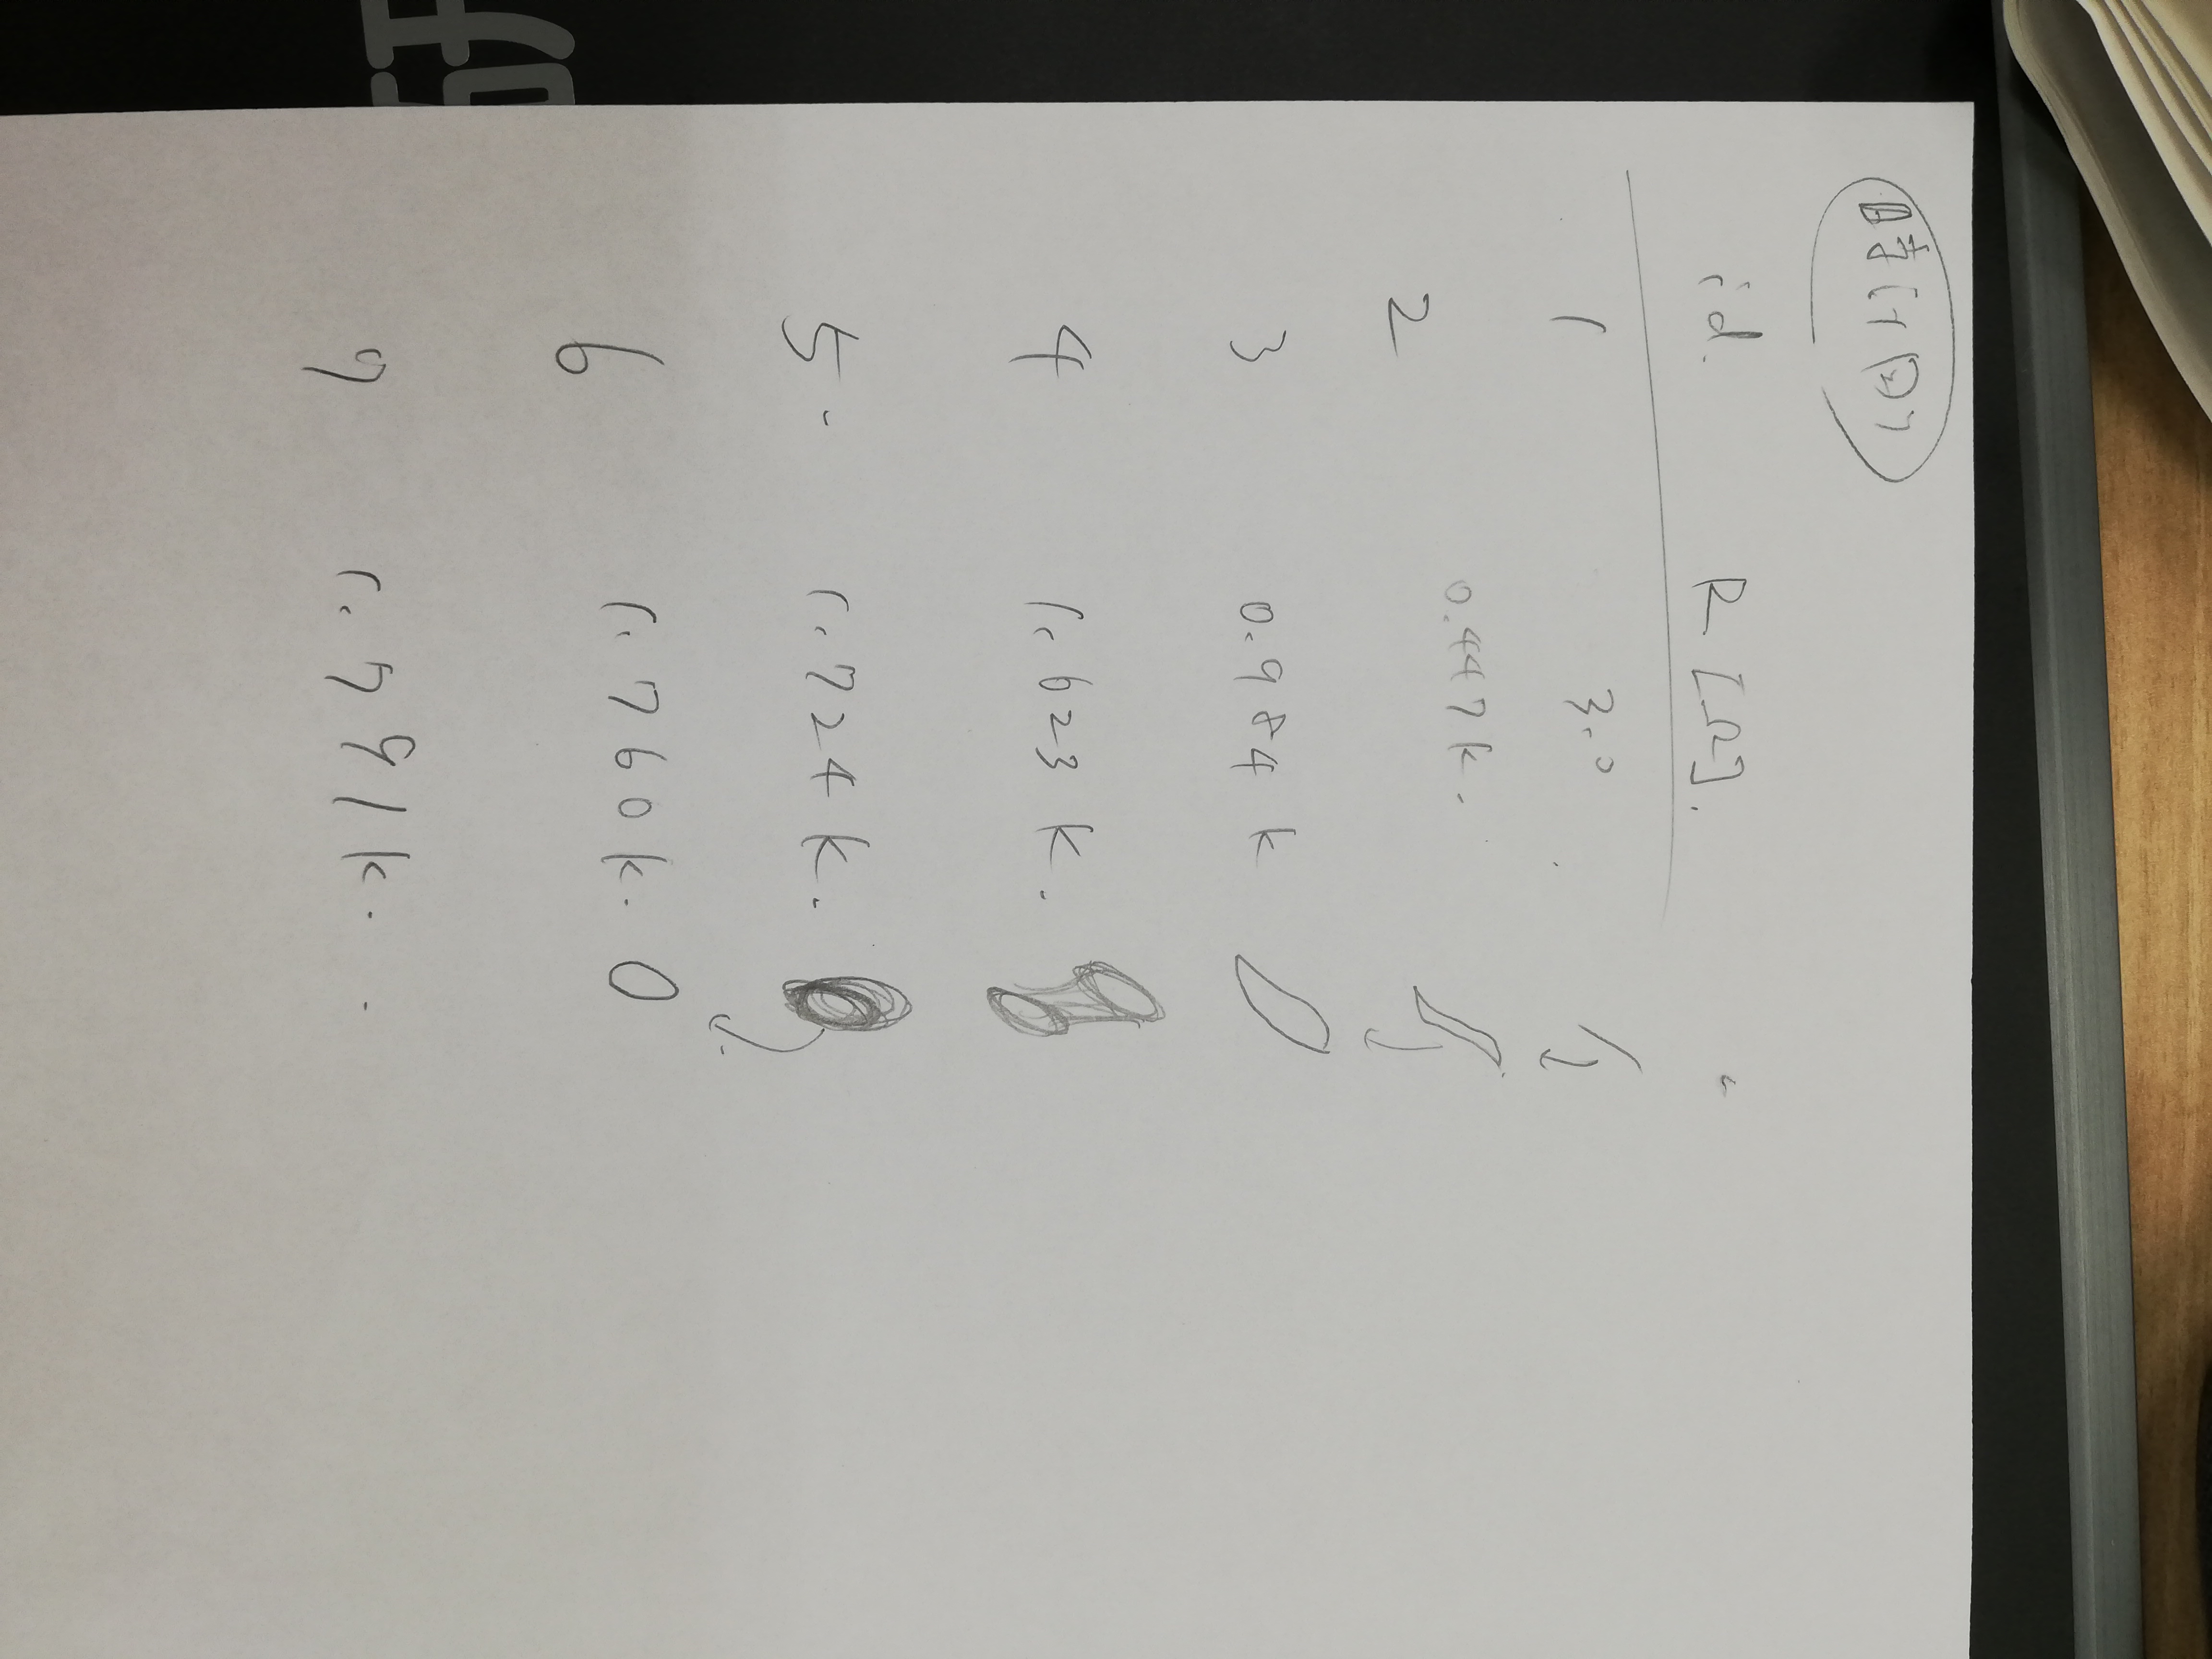 晴れの日
id. R [Ω].
1 3.0
2 0.447k.
3 0.984k
4 1.623k.
5 1.724k.
6 1.760k.
7 1.791k.